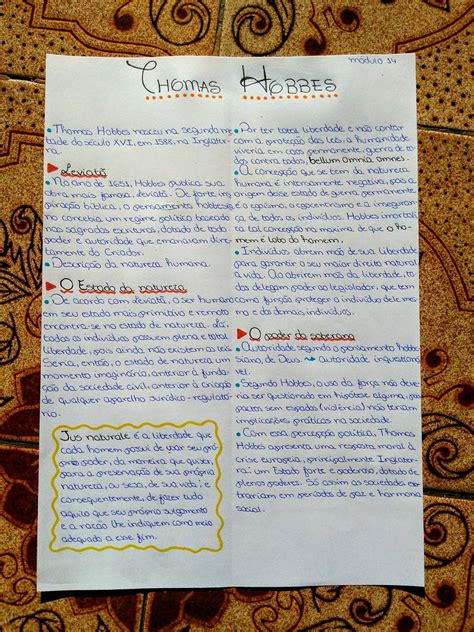 módulo 14
Thomas Hobbes
• Thomas Hobbes nasceu na segunda me-
tade do século XVI, em 1588, na Inglater-
ra.
▶ Leviatã
• No ano de 1651, Hobbes publica sua
obra mais famosa, Leviatã. De forte inspira-
ção bíblica, o pensamento hobbesia-
no concebia um regime político baseado
nas sagradas escrituras, dotado de todo
poder e autoridade que emanavam direta-
mente do Criador.
• Descrição da natureza humana.
▶ O Estado da natureza
• De acordo com Leviatã, o ser humano
em seu estado mais primitivo e remoto
encontra-se no estado de natureza. Lá,
todos os indivíduos possuem plena e total
liberdade, pois ainda não existem as leis.
Seria, então, o estado de natureza um
momento imaginário, anterior à funda-
ção da sociedade civil, anterior à criação
de qualquer aparelho jurídico-regulató-
rio.
Jus naturale é a liberdade que
cada homem possui de usar seu pró-
prio poder, da maneira que quiser,
para a preservação de sua própria
natureza, ou seja, de sua vida; e
consequentemente, de fazer tudo
aquilo que seu próprio julgamento
e a razão lhe indiquem como meio
adequado a esse fim.
• Por ter total liberdade e não contar
com a proteção das leis a humanidade
viveria em caos permanente, guerra de to-
dos contra todos, bellum omnia omnes.
• A concepção que se tem da natureza
humana, é intensamente negativa, pois a
origem desse estado de guerra permanente
é o egoísmo, o egocentrismo e a inseguran-
ça de todos os indivíduos. Hobbes imortali-
za tal concepção na máxima de que o ho-
mem é lobo do homem.
• Indivíduos abrem mão de sua liberdade
para garantir o seu maior direito natural:
a vida. Ao abrirem mão da liberdade, to-
dos delegam poder ao legislador, que tem
como função proteger o indivíduo dele mes-
mo e da demais indivíduos.
▶ O poder do soberano
• Autoridade segundo o pensamento hobbe-
siano, de Deus → Autoridade inquestioná-
vel.
• Segundo Hobbes, o uso da força não deve-
ria ser questionado em hipótese alguma, pois
pactos sem espadas (violência) não teriam
implicações práticas na sociedade.
• Com essa percepção política, Thomas
Hobbes apresenta uma resposta moral à
crise europeia, principalmente Inglater-
ra: um Estado forte e poderoso, dotado de
plenos poderes. Só assim as sociedades en-
trariam em períodos de paz e harmonia
social.